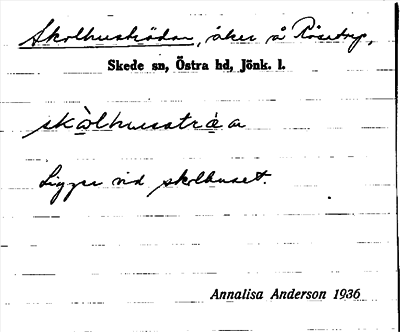 Skolhusträdan, åker å Rösetrp,
Skede sn, Östra hd, Jönk. l.
skòlhusstràa
Ligger vid skolhuset.
Annalisa Anderson 1936